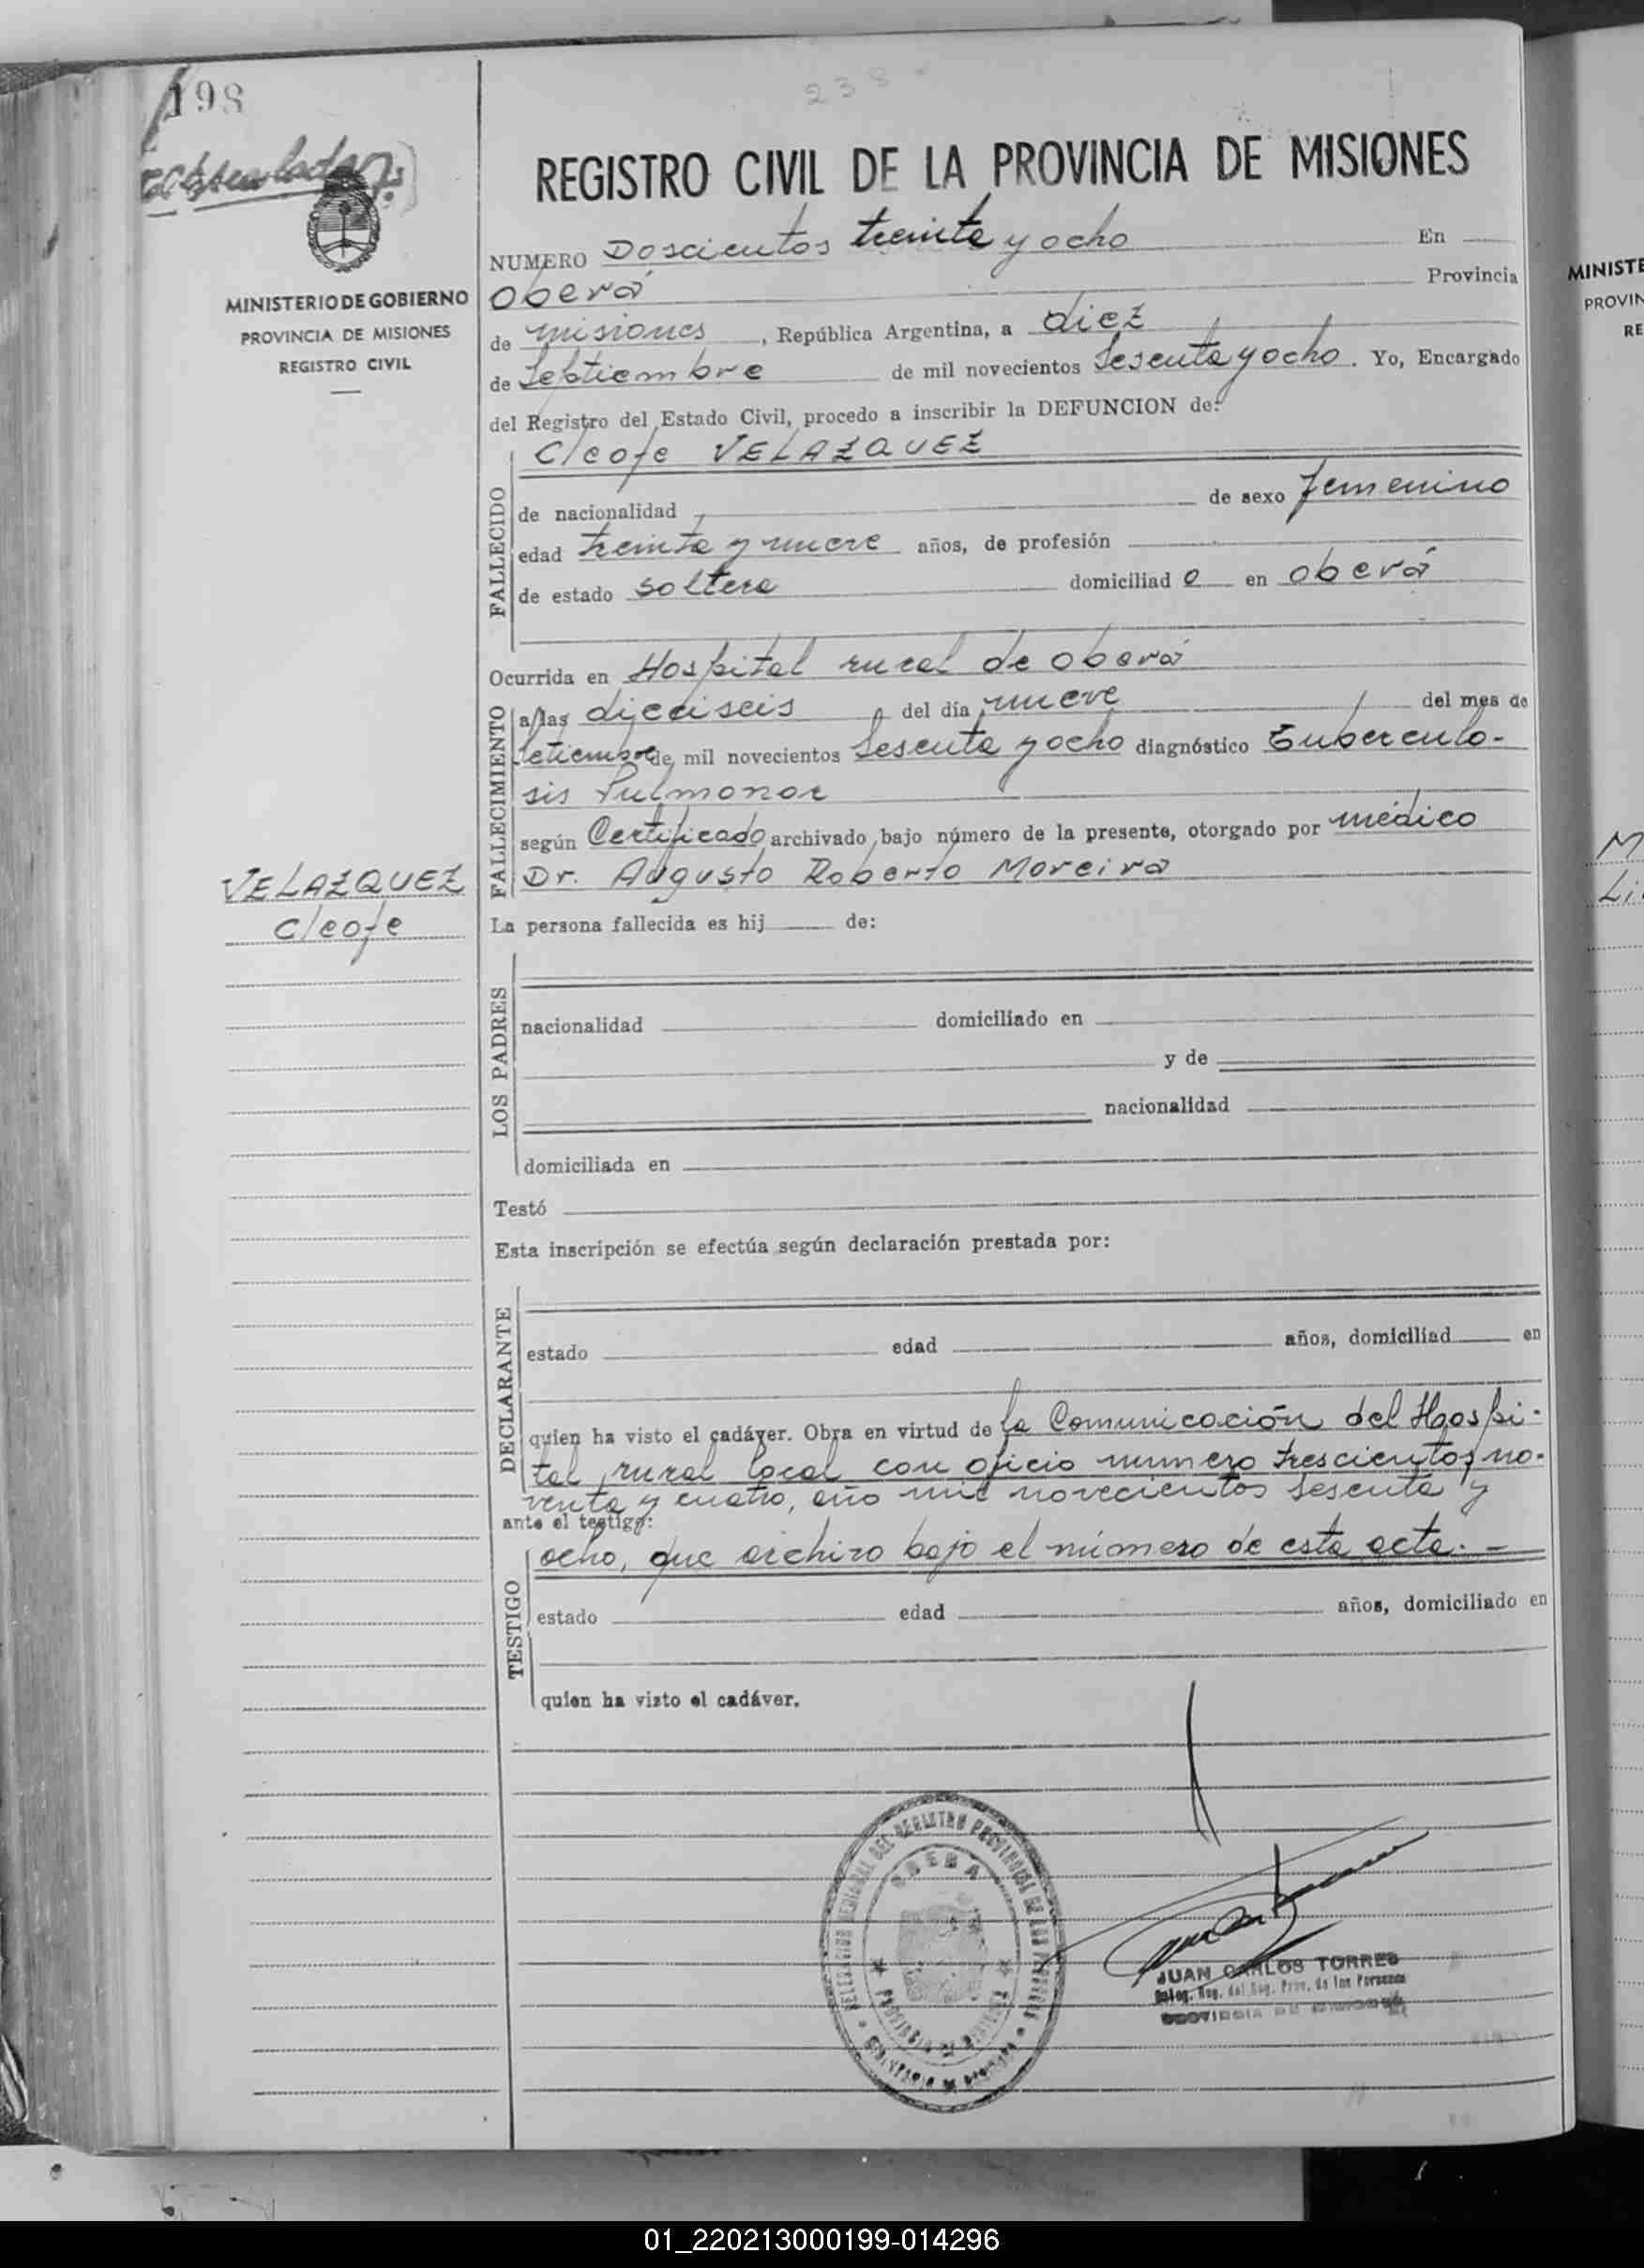 198
238
REGISTRO CIVIL DE LA PROVINCIA DE MISIONES
MINISTERIO DE GOBIERNO
PROVINCIA DE MISIONES
REGISTRO CIVIL
NUMERO Doscientos treinta y ocho En
Oberá Provincia
de misiones, República Argentina, a diez
de Septiembre de mil novecientos sesenta y ocho. Yo, Encargado
del Registro del Estado Civil, procedo a inscribir la DEFUNCION de:
Cleofe VELAZQUEZ
FALLECIDO
de nacionalidad de sexo femenino
edad treinta y nueve años, de profesión
de estado soltera domiciliad o en Oberá
Ocurrida en Hospital rural de Oberá
FALLECIMIENTO
a las dieciseis del día nueve del mes de
Setiembre de mil novecientos sesenta y ocho diagnóstico Tuberculo-
sis Pulmonar
según Certificado archivado bajo número de la presente, otorgado por médico
Dr. Augusto Roberto Moreira
VELAZQUEZ
Cleofe
La persona fallecida es hij de:
LOS PADRES
nacionalidad domiciliado en
y de
nacionalidad
domiciliada en
Testó
Esta inscripción se efectúa según declaración prestada por:
DECLARANTE
estado edad años, domiciliad en
quien ha visto el cadáver. Obra en virtud de la Comunicación del Hospi-
tal rural local con oficio número trescientos no-
venta y cuatro, año mil novecientos sesenta y
ante el testigo:
ocho, que archivo bajo el número de esta acta.-
TESTIGO
estado edad años, domiciliado en
quien ha visto el cadáver.
JUAN CARLOS TORRES
Deleg. Reg. del Reg. Prov. de las Personas
PROVINCIA DE MISIONES
MINISTE
PROVIN
RE
M
Li
01_220213000199-014296